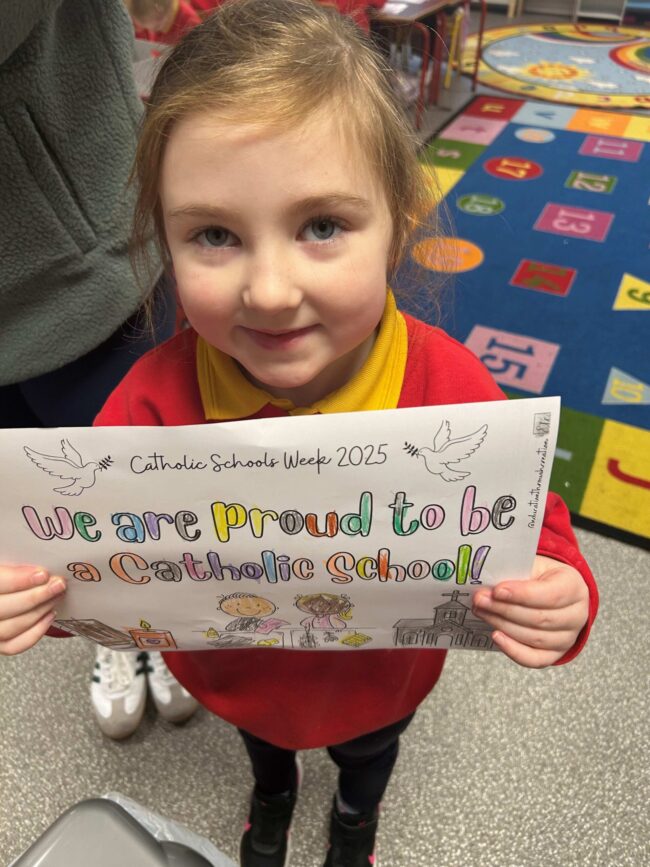 Catholic Schools Week 2025
We are Proud to be
a Catholic School!
17
11
12
18
13
14
15
9
10
J